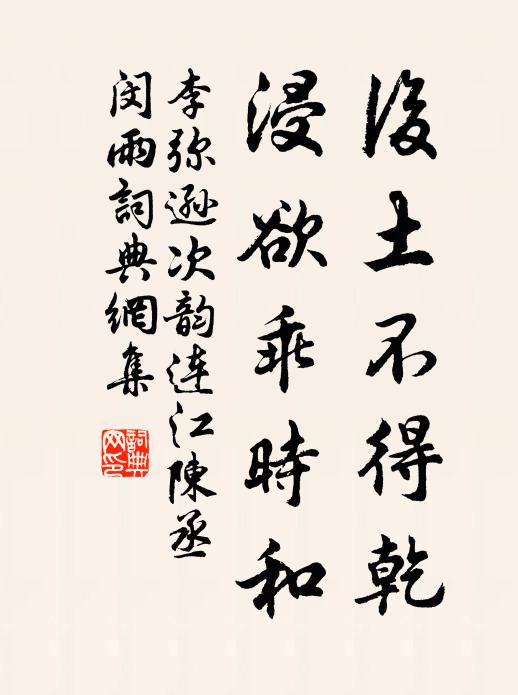 後土不得乾
浸欲乖時和
李弥遜次韵连江陳丞
闵雨詞典網集
詞典网印